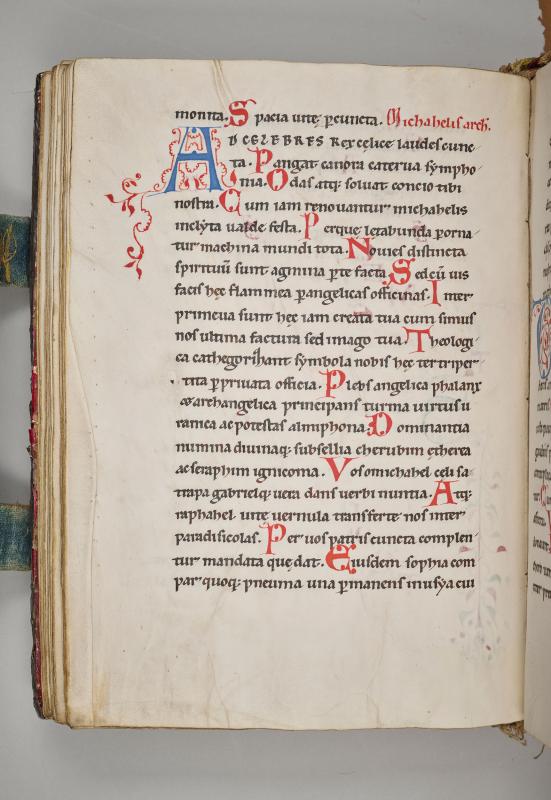 monita. Spacia uite ꝑcuncta. Michahelis arch.
AD CELEBRES Rex celice laudes cunc
ta. Pangat canora caterua sympho
nia. Odas atq; soluat concio tibi
nostra. Cum iam renouantur michahelis
inclyta ualde festa. Perque letabunda ꝑorna
tur machina mundi tota. Nouies distincta
spirituū sunt agmina ꝑ te facta. Sed cū uis
facis hec flammea ꝑ angelicas officinas. Inter
primeua sunt hęc iam creata tua cum simus
nos ultima factura sed imago tua. Theologi
ca cathegorizant symbola nobis hec ter triper
tita ꝑ priuata officia. Plebs angelica phalanx
& archangelica principans turma uirtus u
ranica ac potestas almiphona. Dominantia
numina diuinaq; subsellia cherubim etherea
ac seraphim ignicoma. Vos o michahel celi sa
trapa gabrielq; uera dans uerbi nuntia. Atq;
raphahel uite uernula transferte nos inter
paradisicolas. Per uos patris cuncta complen
tur mandata que dat. Eiusdem sophia com
par quoq; pneuma una ꝑmanens in usya cui